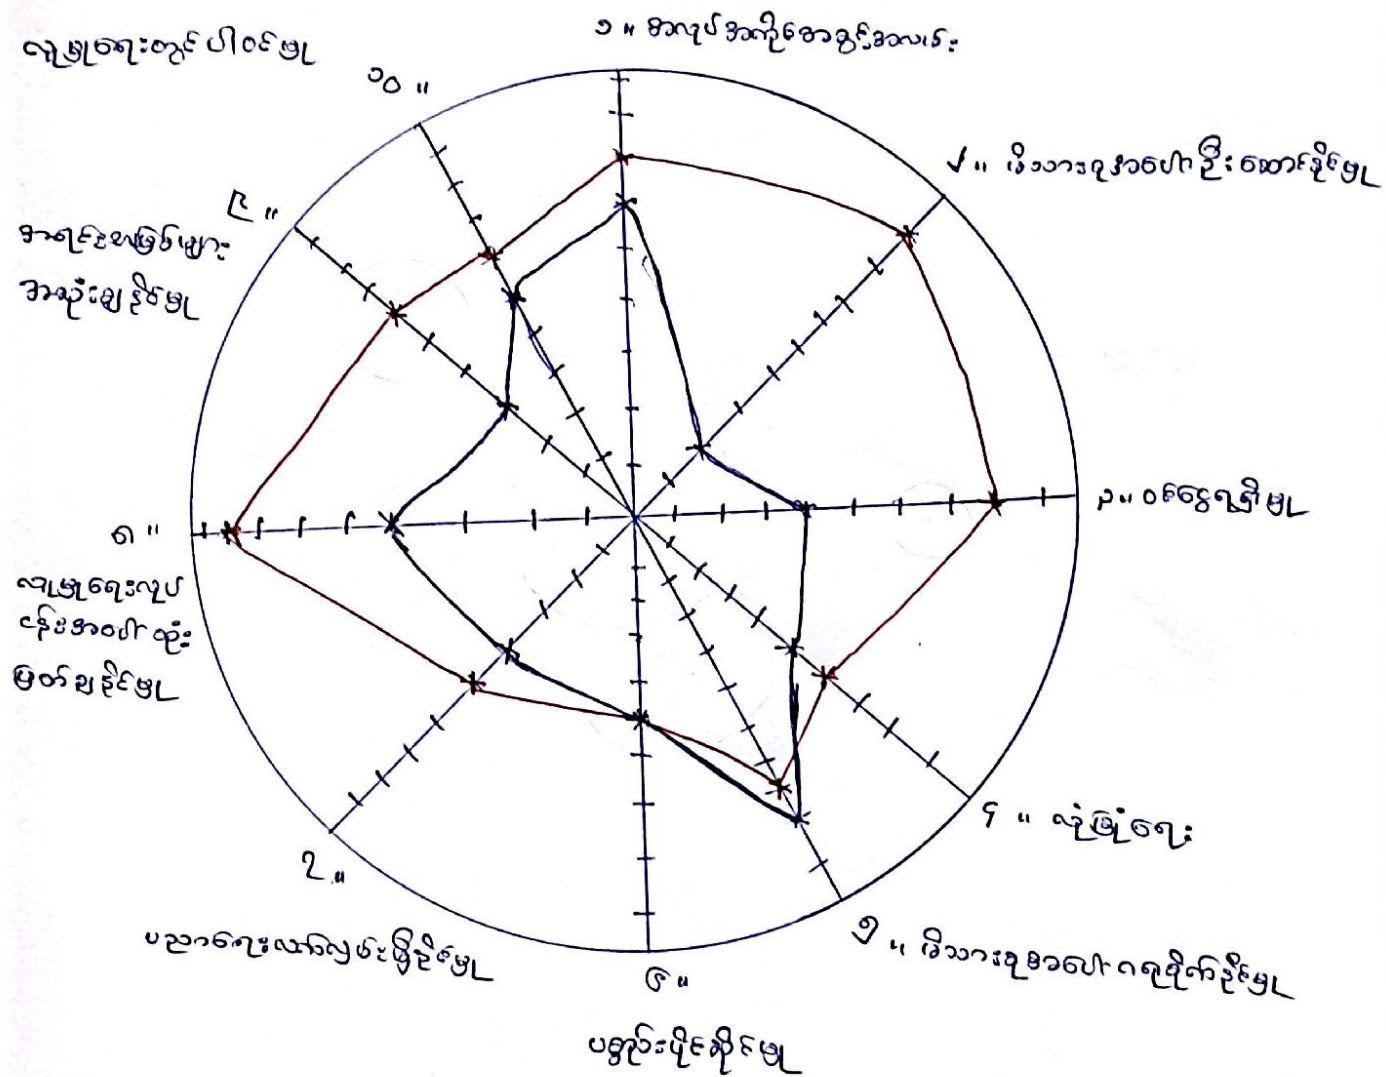 ၁။ အလုပ်အကိုင်အခွင့်အလမ်း
၂။ မိသားစုအပေါ်ဦးဆောင်နိုင်မှု
၃။ ဝင်ငွေရရှိမှု
၄။ လုံခြုံရေး
၅။ မိသားစုအပေါ်ဂရုစိုက်နိုင်မှု
၆။
ပစ္စည်းပိုင်ဆိုင်မှု
၇။
ပညာရေးလမ်းဖွင့်နိုင်မှု
၈။
လူမှုရေးလုပ်
ငန်းအပေါ်ဆုံး
ဖြတ်ချနိုင်မှု
၉။
အရင်းအမြစ်များ
အသုံးချနိုင်မှု
၁၀။
လူမှုရေးတွင်ပါဝင်မှု